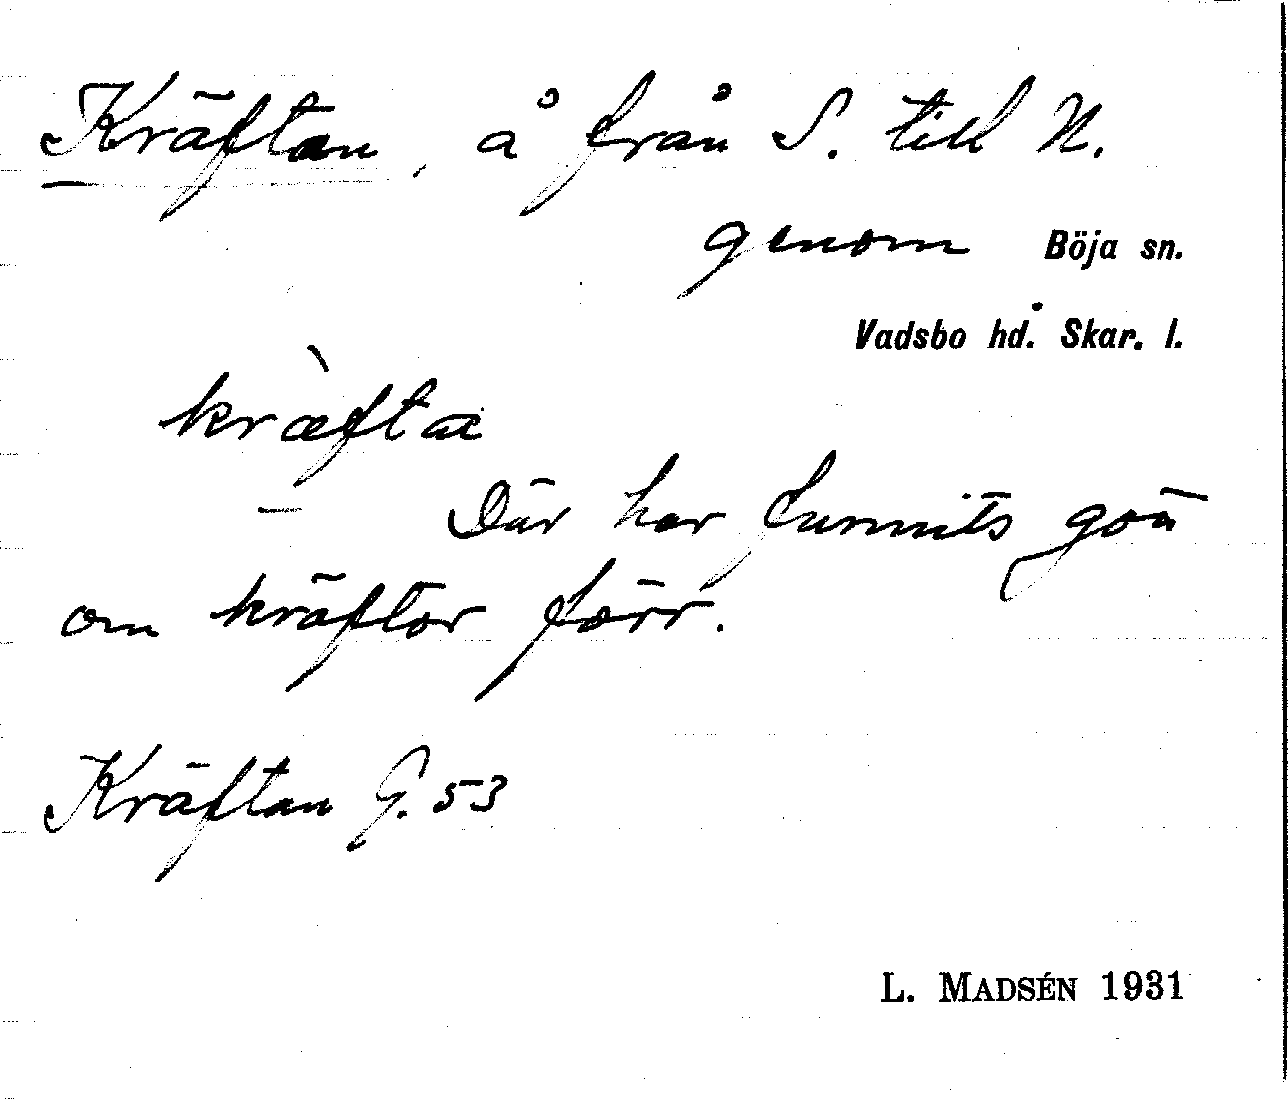 Kräftan, å från S. till N.
genom Böja sn.
Vadsbo hd. Skar. l.
kræ̀fta
— Där har funnits gott
om kräftor förr.
Kräftan G. 53
L. MADSÉN 1931